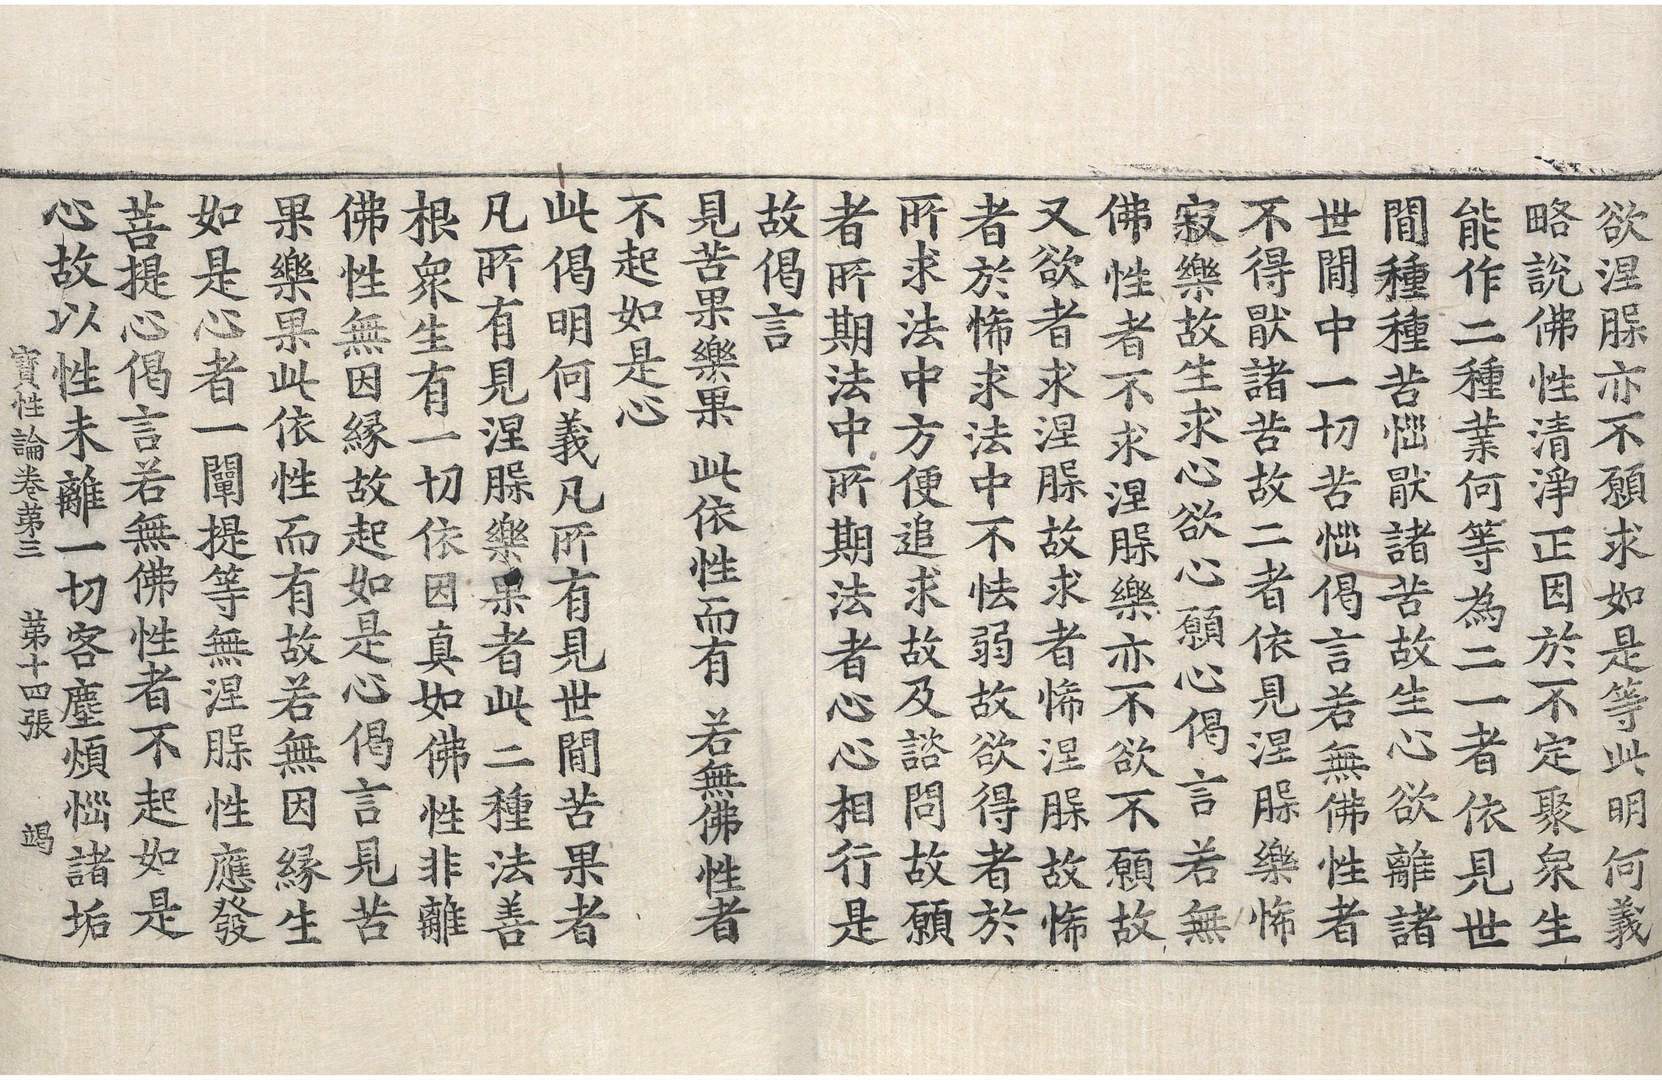 欲涅槃亦不願求如是等此明何義
略說佛性清淨正因於不定聚衆生
能作二種業何等為二一者依見世
間種種苦惱厭諸苦故生心欲離諸
世間中一切苦惱偈言若無佛性者
不得厭諸苦故二者依見涅槃樂悕
寂樂故生求心欲心願心偈言若無
佛性者不求涅槃樂亦不欲不願故
又欲者求涅槃故求者悕涅槃故悕
者於悕求法中不怯弱故欲得者於
所求法中方便追求故及諮問故願
者所期法中所期法者心心相行是
故偈言
見苦果樂果 此依性而有 若無佛性者
不起如是心
此偈明何義凡所有見世間苦果者
凡所有見涅槃樂果者此二種法善
根衆生有一切依因真如佛性非離
佛性無因緣故起如是心偈言見苦
果樂果此依性而有故若無因緣生
如是心者一闡提等無涅槃性應發
菩提心偈言若無佛性者不起如是
心故以性未離一切客塵煩惱諸垢
寶性論卷第三 第十四張 竭